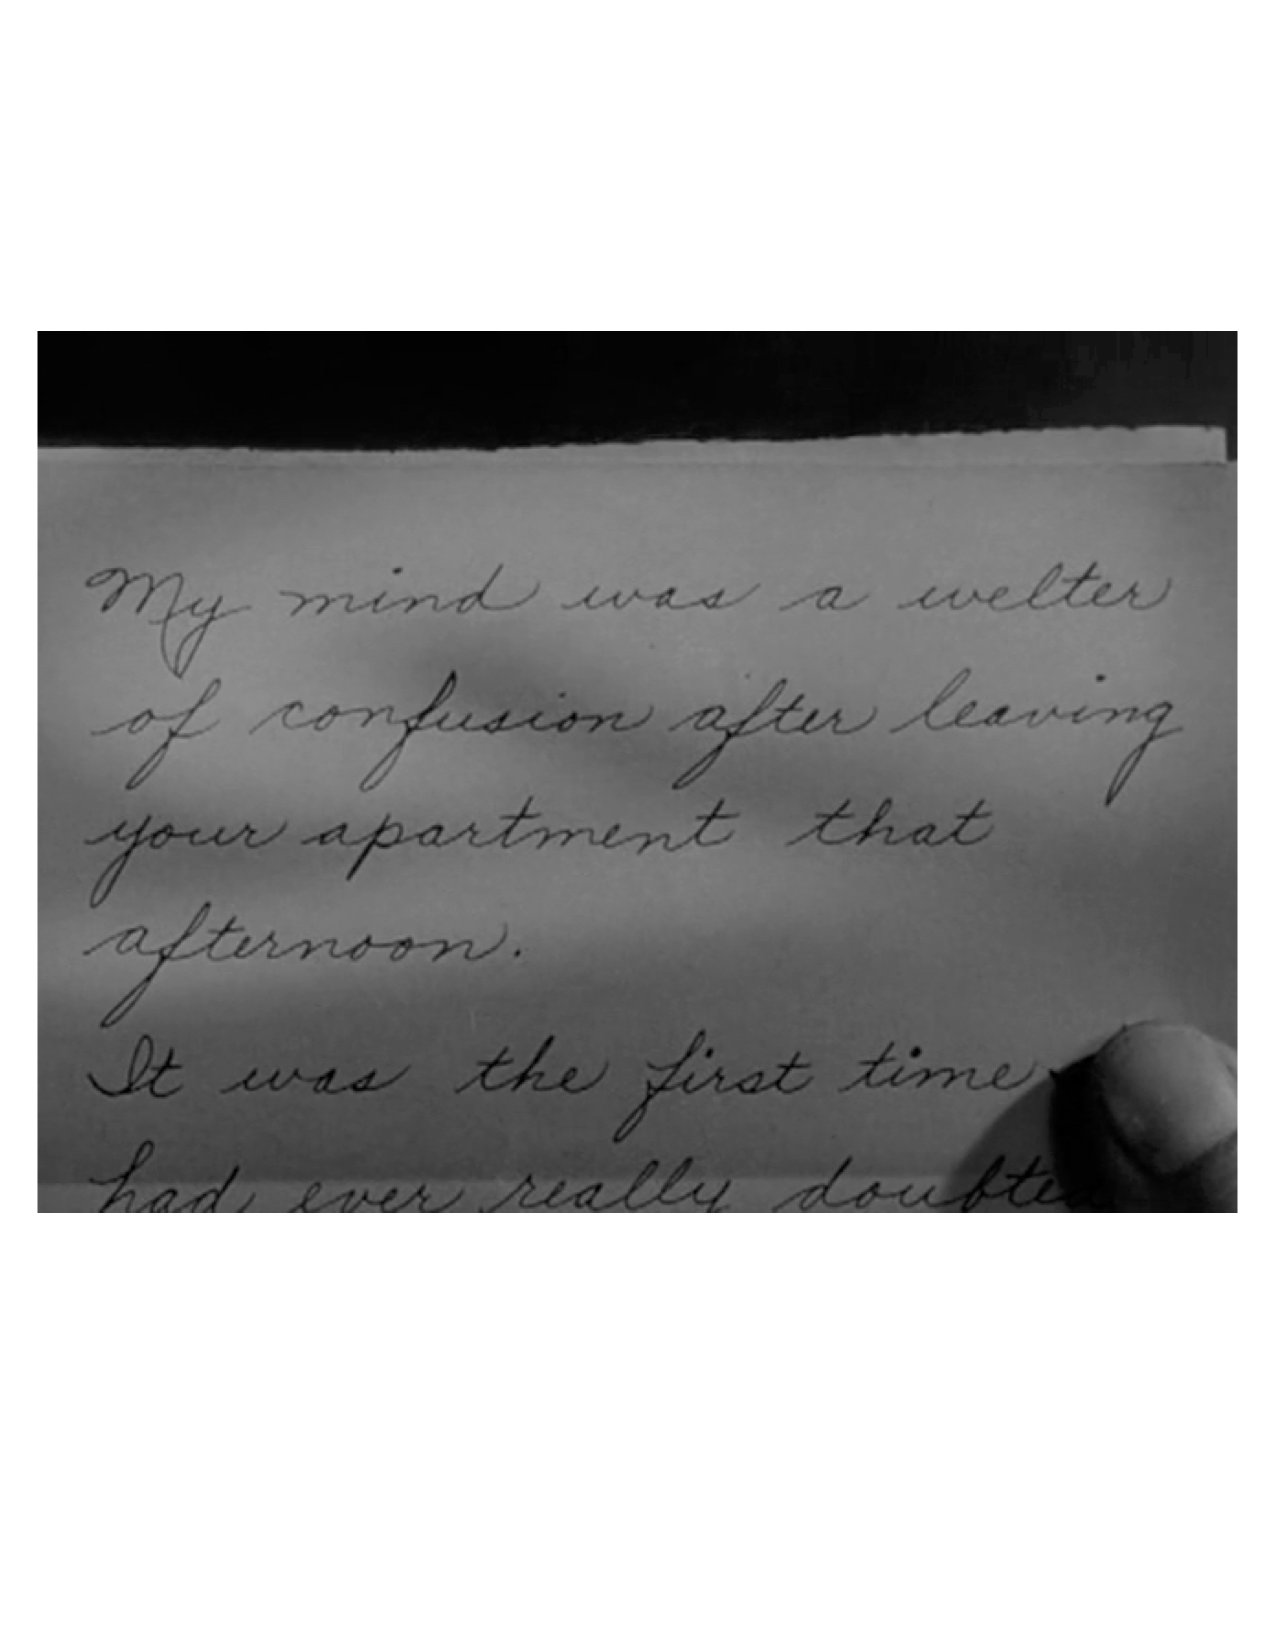 My mind was a welter
of confusion after leaving
your apartment that
afternoon.
It was the first time
had ever really doubted